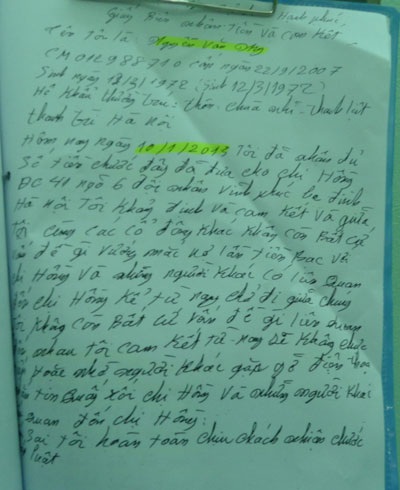 Giấy Biên nhận tiền và cam kết
Tên tôi là: Nguyễn Văn
CM 012988710 cấp ngày 22/9/2007
Sinh ngày 18/3/1972
Hộ khẩu thường trú: thôn
thanh trì Hà Nội
Hôm nay ngày 10/1/2013 Tôi đã nhận đủ
Số tiền trước đây đã đưa cho chị Hồng
ĐC 41 ngõ 6 đội nhân Vĩnh phúc ba đình
Hà nội Tôi khẳng định và cam kết và giữa
tôi cùng các cổ đông khác không còn Bất cứ
đề gì vướng mắc nợ lần tiền bạc với
chị Hồng và những người khác có liên quan
đến chị Hồng kể từ nay trở đi giữa chúng
tôi không còn Bất cứ vấn đề gì liên quan
nhau tôi cam kết từ nay sẽ không
Hoặc nhờ người khác gặp gỡ điện thoại
tin quấy rối chị Hồng và những người khác
quan đến chị Hồng.
sai tôi hoàn toàn chịu trách nhiệm trước
luật